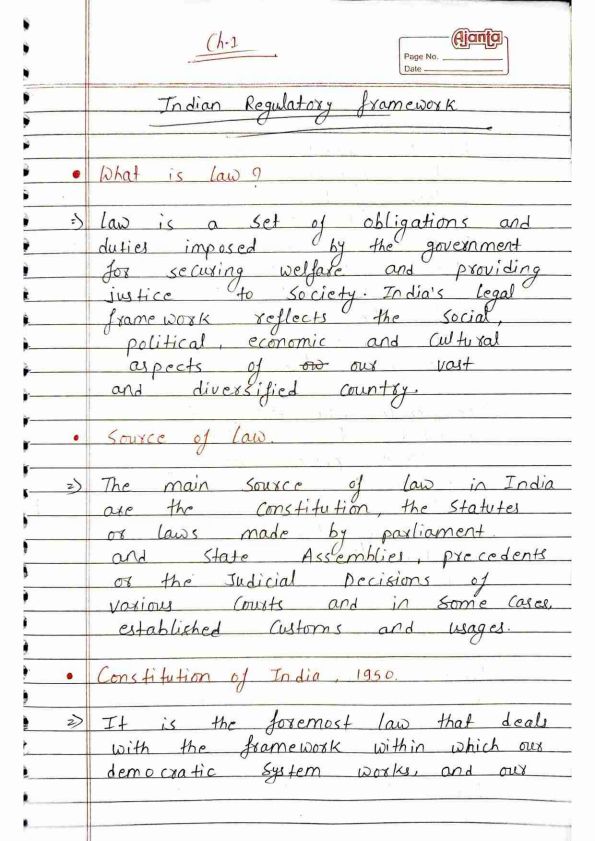 Ch.1
Ajanta
Page No.
Date
Indian Regulatory framework
• What is law ?
⇒ law is a set of obligations and
duties imposed by the government
for securing welfare and providing
justice to society. India's legal
framework reflects the social,
political, economic and cultural
aspects of our vast
and diversified country.
• Source of law.
⇒ The main source of law in India
are the Constitution, the Statutes
or laws made by parliament
and State Assemblies, precedents
or the Judicial Decisions of
various Courts and in some cases,
established Customs and usages.
• Constitution of India, 1950.
⇒ It is the foremost law that deals
with the framework within which our
democratic System works, and our